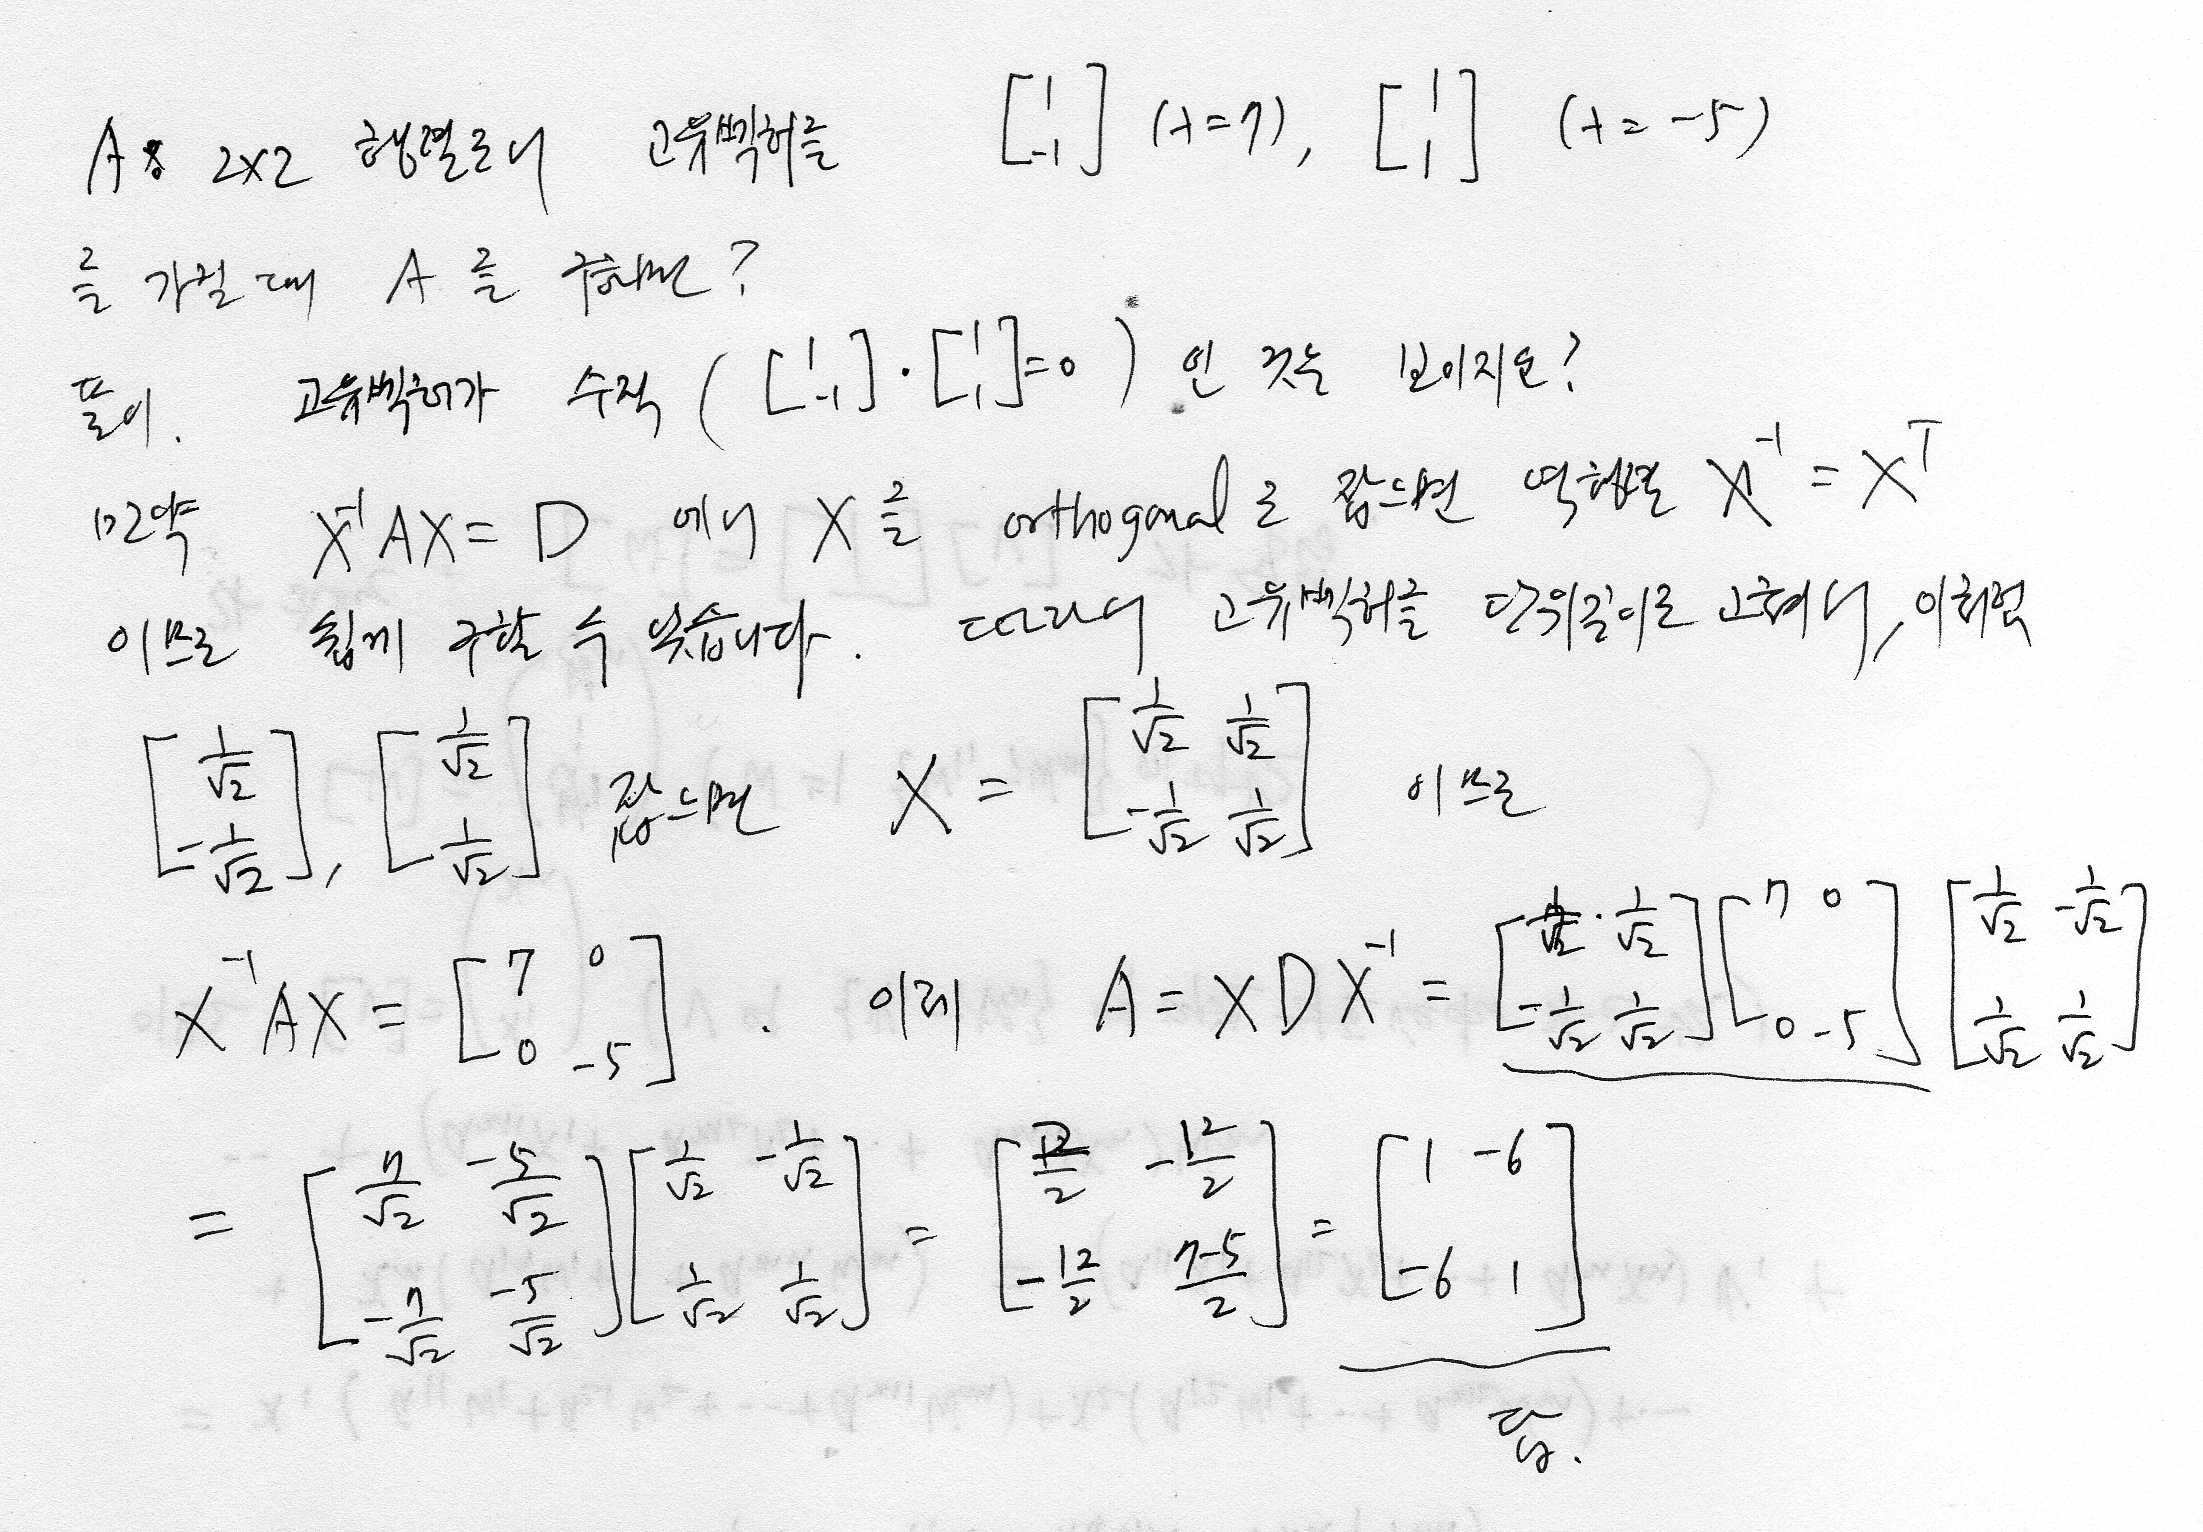 A는 2x2 행렬로서 고유벡터를 [1 -1] (λ=7), [1 1] (λ=-5)
를 가질 때 A를 구하면?
풀이. 고유벡터가 수직 ([1 -1]·[1 1]=0) 인 것은 보이지요?
만약 X⁻¹AX = D 에서 X를 orthogonal로 잡으면 역행렬 X⁻¹ = Xᵀ
이므로 쉽게 구할 수 있습니다. 따라서 고유벡터를 단위길이로 고쳐서,
[1/√2 -1/√2], [1/√2 1/√2] 잡으면 X = [1/√2 1/√2 -1/√2 1/√2] 이므로
X⁻¹AX = [7 0 0 -5]. 이제 A = XDX⁻¹ = [1/√2 1/√2 -1/√2 1/√2][7 0 0 -5][1/√2 -1/√2 1/√2 1/√2]
= [7/√2 -5/√2 -7/√2 -5/√2][1/√2 -1/√2 1/√2 1/√2] = [ -12/2 -12/2 7-5/2] = [1 -6 -6 1]
답.